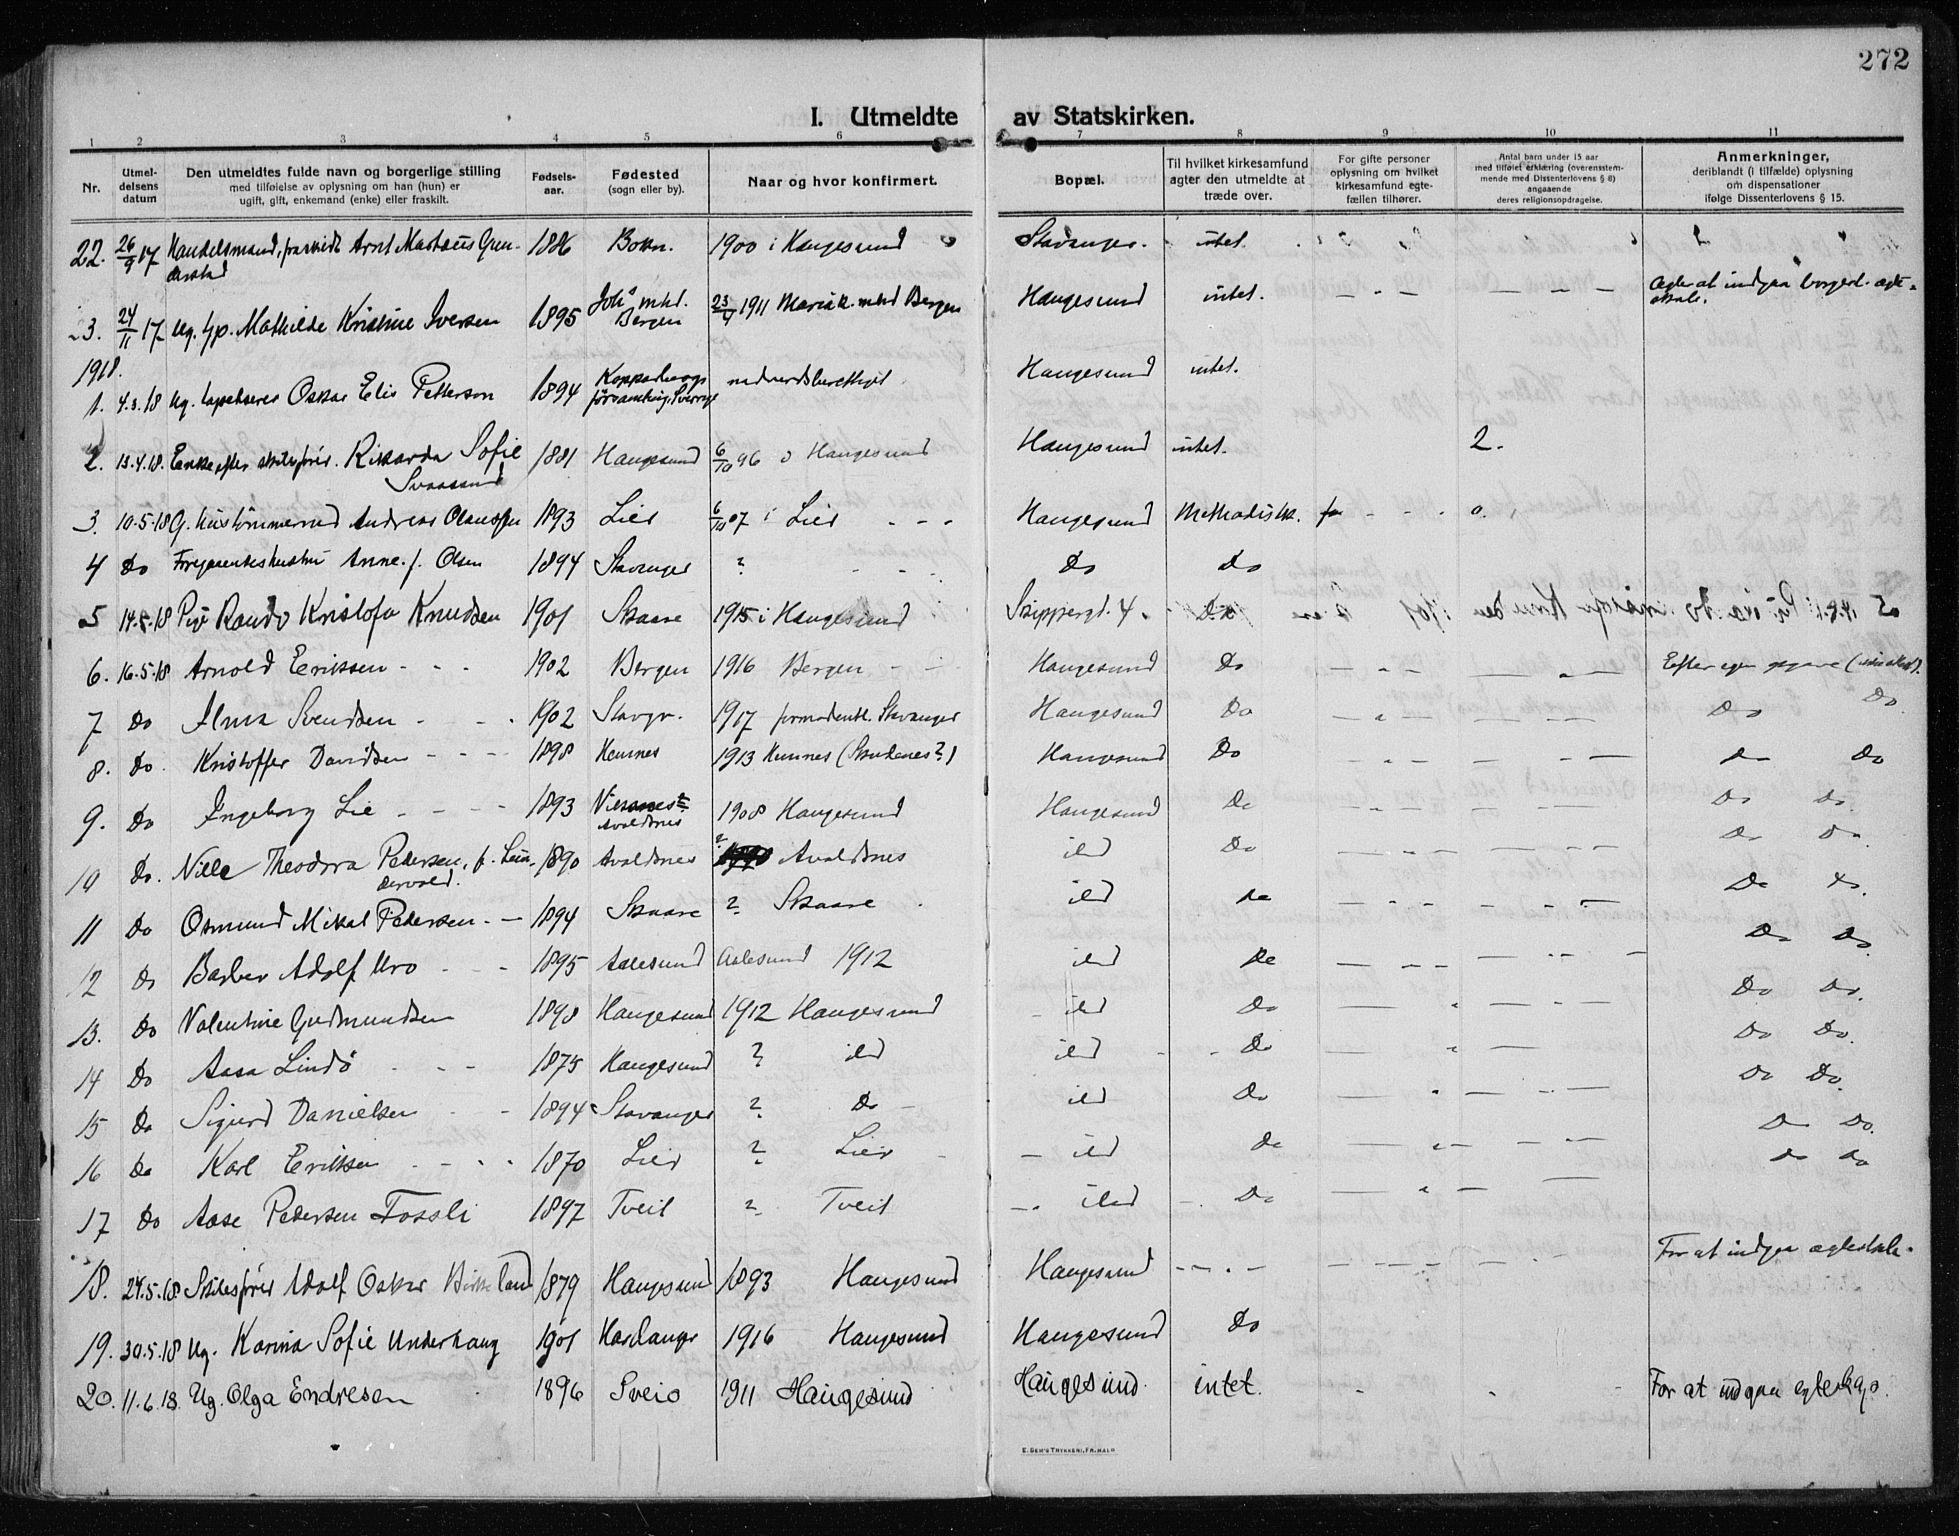 272
I. Utmeldte av Statskirken.
1 2 3 4 5 6 7 8 9 10 11
Nr.
Utmel-
delsens
datum
Den utmeldtes fulde navn og borgerlige stilling
med tilføielse av oplysning om han (hun) er
ugift, gift, enkemand (enke) eller fraskilt.
Fødsels-
aar.
Fødested
(sogn eller by).
Naar og hvor konfirmert.
Bopæl.
Til hvilket kirkesamfund
agter den utmeldte at
træde over.
For gifte personer
oplysning om hvilket
kirkesamfund egte-
fællen tilhører.
Antal barn under 15 aar
med tilføiet erklæring (overensstem-
mende med Dissenterlovens § 8)
angaaende
deres religionsopdragelse.
Anmerkninger,
deriblandt (i tilfælde) oplysning
om dispensationer
ifølge Dissenterlovens § 15.
22. 26/9 17 Handelsmand, fraskilt Arnt 1886 Bokn. 1900 i Haugesund Stavanger. intet.
24/11 17 Ug. Mathilde Kristine Iversen 1895 Bergen 23/4 1911 Bergen Haugesund intet. Agter at indgaa borgerl. egte-
skab.
1918.
1. 4.3.18 Ug. Oskar Elis Petterson 1894 Haugesund intet.
2. 13.4.18. Enke efter Rikarda Sofie 1881 Haugesund 6/10 96 i Haugesund Haugesund intet. 2.
Svaasand
3. 10.5.18 G. Andreas 1893 Lier 6/10 07 i Lier - - - Haugesund Methodistk. 0.
4 Do Anne f. Olsen 1894 Stavanger ? Do Do
5 14.5.18 Pike Kristofa Knudsen 1901 Skaare 1915 i Haugesund Skippergt. 4. Do
6. 16.5.18 Arnold Eriksen - - - 1902 Bergen 1916 Bergen - - Haugesund Do Efter egen
7 Do Alma Svendsen - - - 1902 Stavgr. 1917 Stavanger Haugesund Do Do Do
8. Do. Kristoffer Davidsen - - - 1898 1913 (Skudenes?) Haugesund Do Do Do
9. Do Ingeborg Lie - - - 1893 Avaldsnes 1908 Haugesund Haugesund Do Do Do.
10 Do. Nille Theodora Pedersen, f. 1890 Avaldsnes ? Avaldsnes ibd Do Do Do
11 Do Osmund Mikal Pedersen - - 1894 Skaare ? Skaare ibd Do Do Do.
12 Do Barber Adolf Uro - - - 1895 Aalesund Aalesund 1912 ibd Do Do Do.
13. Do Valentine Gudmundsen 1898 Haugesund 1912 Haugesund ibd Do Do Do.
14 Do Aasa Lindø - - - 1875 Haugesund ? ibd ibd Do Do Do.
15 Do Sigurd Danielsen - - 1894 Stavanger ? Do ibd Do Do Do.
16 Do Karl Eriksen - - - 1870 Lier ? Lier ibd Do Do Do.
17 Do Aase Pedersen Fossli 1897 Tveit ? Tveit ibd Do Do Do
18. 24.5.18. Adolf Oskar Birkeland 1879 Haugesund 1893 Haugesund Haugesund - - . - For at indgaa egteskab.
19. 30.5.18 Ug. Karina Sofie Underhaug 1901 Hardanger 1916 Haugesund Haugesund Do
20. 11.6.18. Ug. Olga Endresen 1896 Sveio 1911 Haugesund Haugesund intet. For at indgaa egteskap.
E. SEM'S TRYKKERI, FR.HALD